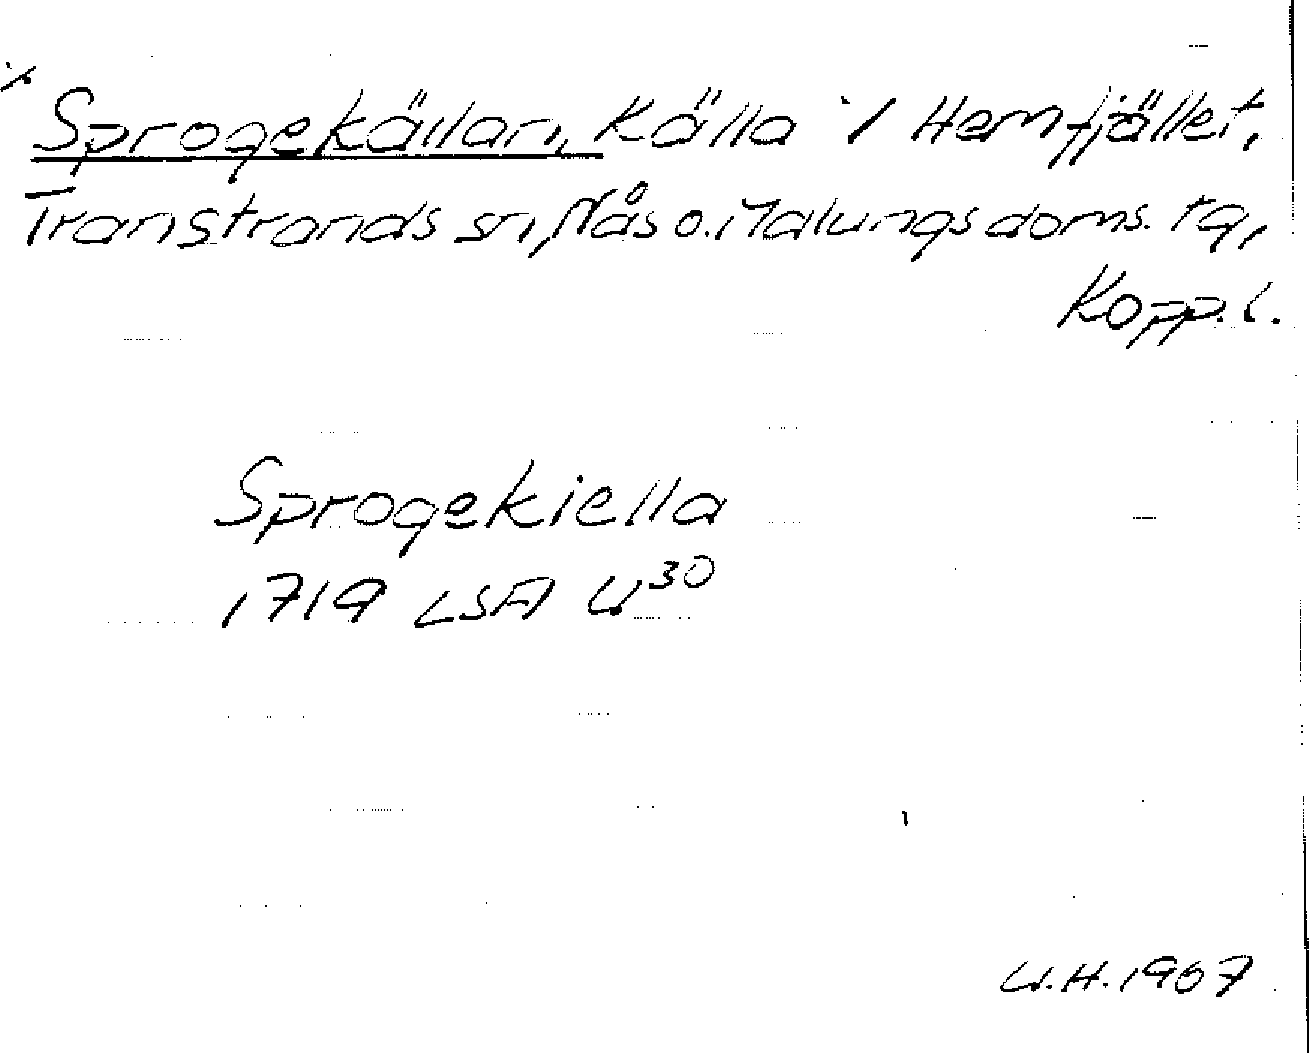 % Sprogekällan, Källa i Hemfjället,
Transtrands sn, Nås o. Malungs doms. tg,
Kopp. l.
Sprogekiella
1719 LSA U30
U.H. 1967